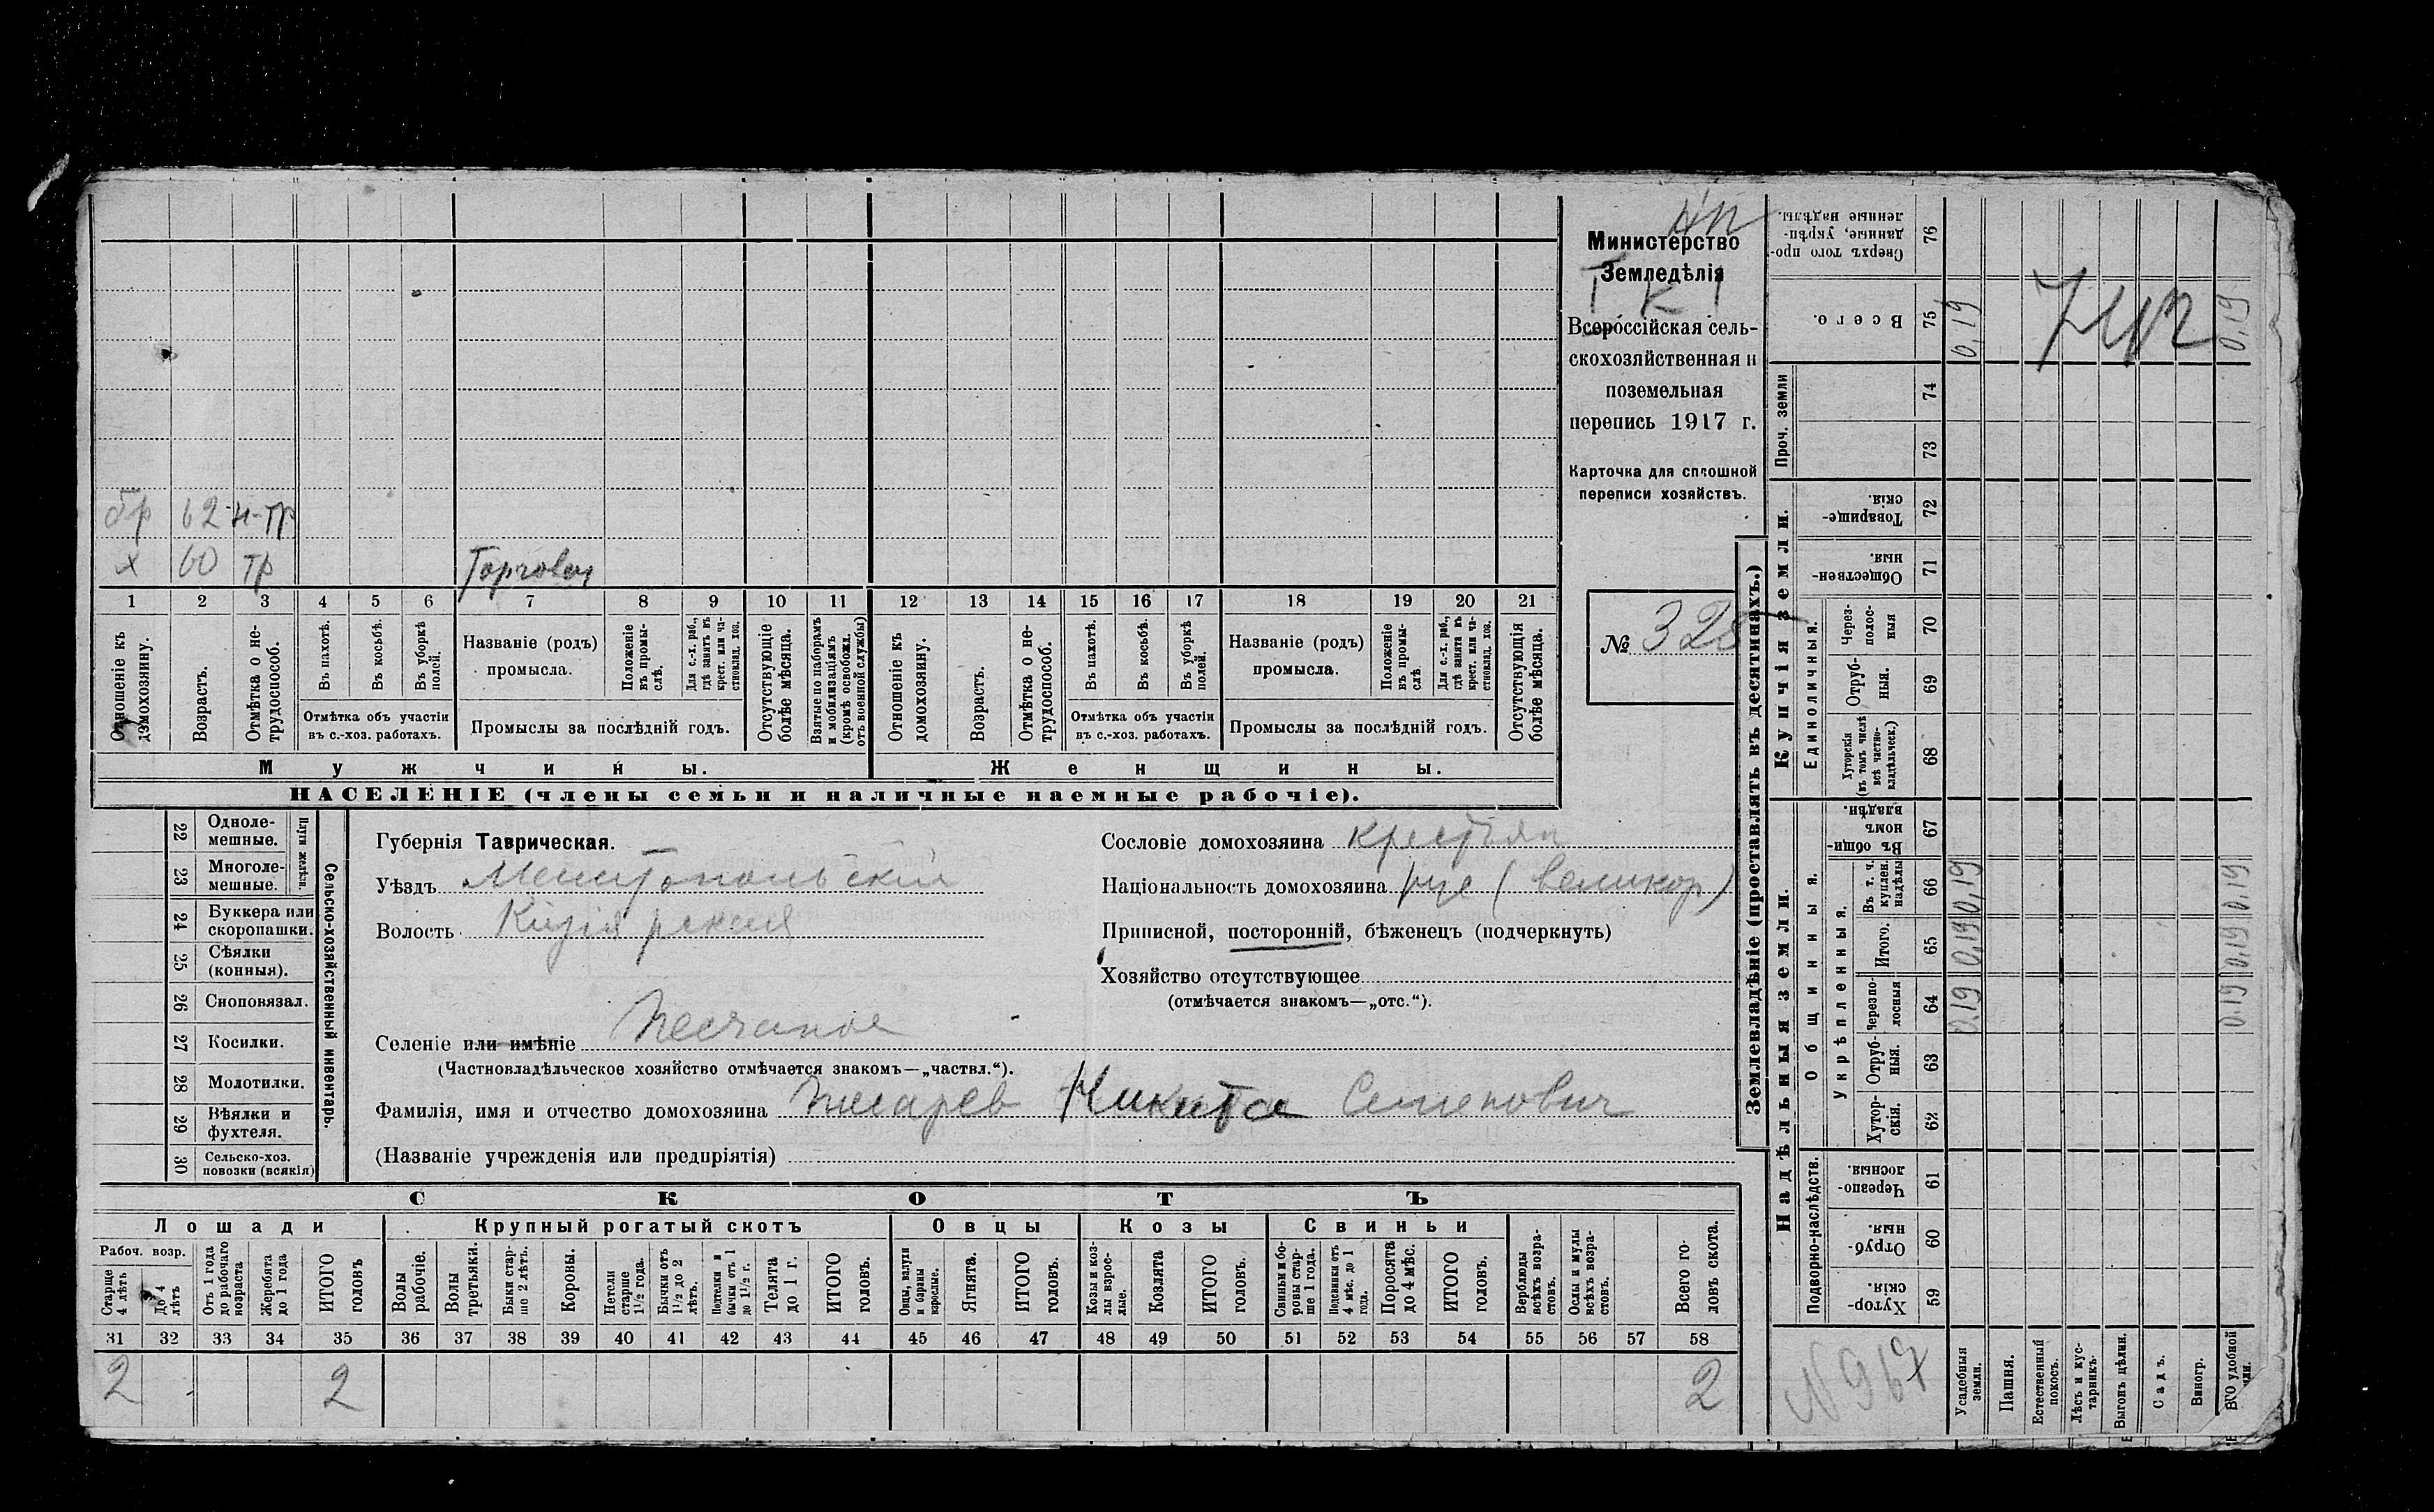 бр 62 н-тр
х 60 тр Торговец
1 2 3 4 5 6 7 8 9 10 11 12 13 14 15 16 17 18 19 20 21
Отношеніе къ домохозяину.
Возрастъ.
Отмѣтка о не-трудоспособ.
Въ пахотѣ.
Въ косьбѣ.
Въ уборкѣ полей.
Отмѣтка объ участіи
въ с.-хоз. работахъ.
Названіе (родъ)
промысла.
Положеніе въ промы-слѣ.
Для с.-х. раб., гдѣ занятъ въ крест. или ча-стновлад. хоз.
Промыслы за послѣдній годъ.
Отсутствующіе болѣе мѣсяца.
Взятые по наборамъ и мобилизаціямъ (кромѣ освобожд. отъ военной службы)
Отношеніе къ домохозяину.
Возрастъ.
Отмѣтка о не-трудоспособ.
Въ пахотѣ.
Въ косьбѣ.
Въ уборкѣ полей.
Отмѣтка объ участіи
въ с.-хоз. работахъ.
Названіе (родъ)
промысла.
Положеніе въ промы-слѣ
Для с.-х. раб., гдѣ занята въ крест. или ча-стновлад. хоз.
Промыслы за послѣдній годъ.
Отсутствующія болѣе мѣсяца.
Мужчины. Женщины.
НАСЕЛЕНІЕ (члены семьи и наличные наемные рабочіе).
Министерство
Земледѣлія
Т К 1
Всероссійская сель-
скохозяйственная и
поземельная
перепись 1917 г.
Карточка для сплошной
переписи хозяйствъ.
№ 328
22 Одноле-мешные.
23 Многоле-мешные.
Плуги желѣзн.
24 Буккера или скоропашки.
25 Сѣялки (конныя).
26 Сноповязал.
27 Косилки.
28 Молотилки.
29 Вѣялки и фухтеля.
30 Сельско-хоз. повозки (всякія)
Сельско-хозяйственный инвентарь.
Губернія Таврическая.
Уѣздъ Мелитопольскій
Волость Кизіярская
Селеніе или имѣніе Песчаное
(Частновладѣльческое хозяйство отмѣчается знакомъ—„частвл.“).
Фамилія, имя и отчество домохозяина Писарев Никита Семенович
(Названіе учрежденія или предпріятія)
Сословіе домохозяина крестьян
Національность домохозяина рус (великор)
Приписной, посторонній, бѣженецъ (подчеркнуть)
Хозяйство отсутствующее
(отмѣчается знакомъ—„отс.“).
СКОТЪ
Лошади Крупный рогатый скотъ Овцы Козы Свиньи
Рабоч. возр.
Старше 4 лѣтъ
До 4 лѣтъ
Отъ 1 года до рабочаго возраста
Жеребята до 1 года
ИТОГО головъ
Волы рабочіе.
Волы третьяки.
Быки стар-ше 2 лѣтъ.
Коровы.
Нетели старше 1½ года.
Бычки отъ 1½ до 2 лѣтъ.
Подтелки и бычки отъ 1 до 1½ г.
Телята до 1 г.
ИТОГО головъ.
Овцы, валухи и бараны взрослые.
Ягнята.
ИТОГО головъ.
Козы и коз-лы взрос-лые.
Козлята
ИТОГО головъ.
Свиньи и бо-ровы стар-ше 1 года.
Подсвинки отъ 4 мѣс. до 1 года.
Поросята до 4 мѣс.
ИТОГО головъ.
Верблюды всѣхъ возра-стовъ.
Ослы и мулы всѣхъ возра-стовъ.
Всего го-ловъ скота.
31 32 33 34 35 36 37 38 39 40 41 42 43 44 45 46 47 48 49 50 51 52 53 54 55 56 57 58
2 2 2
Землевладѣніе (проставлять въ десятинахъ.)
Надѣльныя земли. Купчія земли. Проч. земли
Подворно-наслѣдств.
Общинныя.
Укрѣпленныя.
Единоличныя.
Хутор-скія. 59
Отруб-ныя. 60
Черезпо-лосныя. 61
Хутор-скія. 62
Отруб-ныя. 63
Черезпо-лосныя 64 0,19 0,19
Итого. 65 0,19 0,19
Въ т. ч. куплен. надѣлы 66 0,19 0,19
Въ общи-номъ владѣн. 67
Хуторскія (въ томъ числѣ всѣ частно-владѣльческ.) 68
Отруб-ныя. 69
Через-полос-ныя 70
Обществен-ныя. 71
Товарище-скія. 72
73
74
Всего. 75 0,19 0,19
Сверхъ того про-данные, укрѣп-ленные надѣлы. 76
N 967
Усадебныя земли.
Пашня.
Естественный покосъ.
Лѣсъ и кус-тарникъ.
Выгонъ цѣлин.
Садъ.
Виногр.